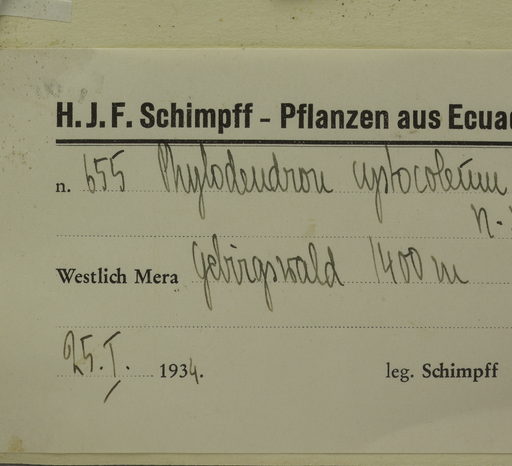 H.J.F. Schimpff - Pflanzen aus Ecuad
n. 655 Phylodendron cystocoleum
n.
Westlich Mera Gebirgswald 1400 m
25.I. 1934.
leg. Schimpff